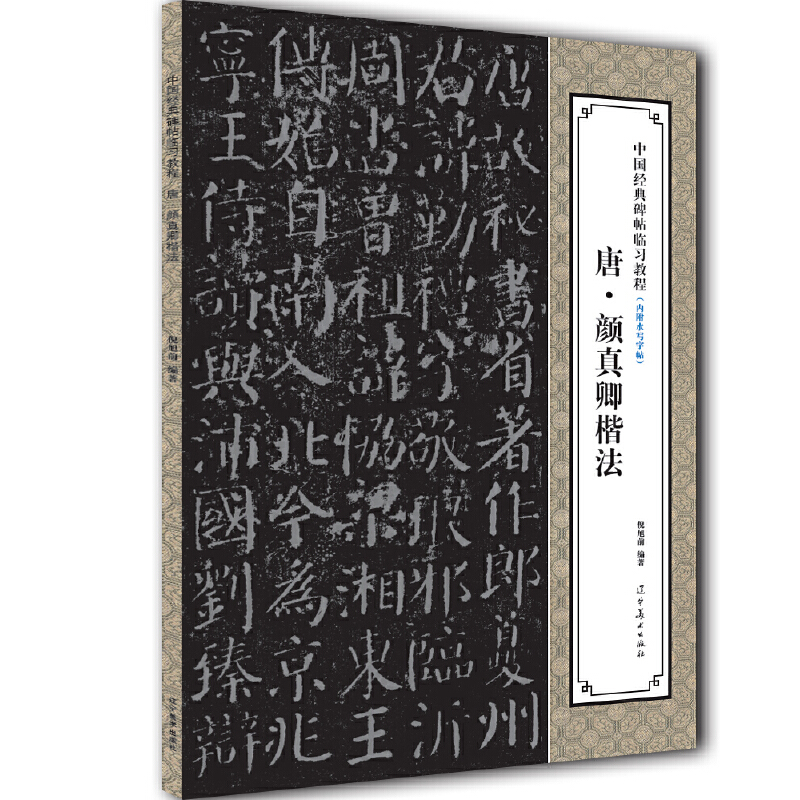 中国经典碑帖临习教程
（内附水写字帖）
唐·颜真卿楷法
倪旭前 编著
辽宁美术出版社
唐故秘書省著作郎夔州
君諱勤禮字敬琅邪臨沂
周書曾祖諱協梁湘東王
傳始自南入北今為京兆
寧王侍讀與沛國劉臻辯
中国经典碑帖临习教程 唐·颜真卿楷法 倪旭前 编著 辽宁美术出版社